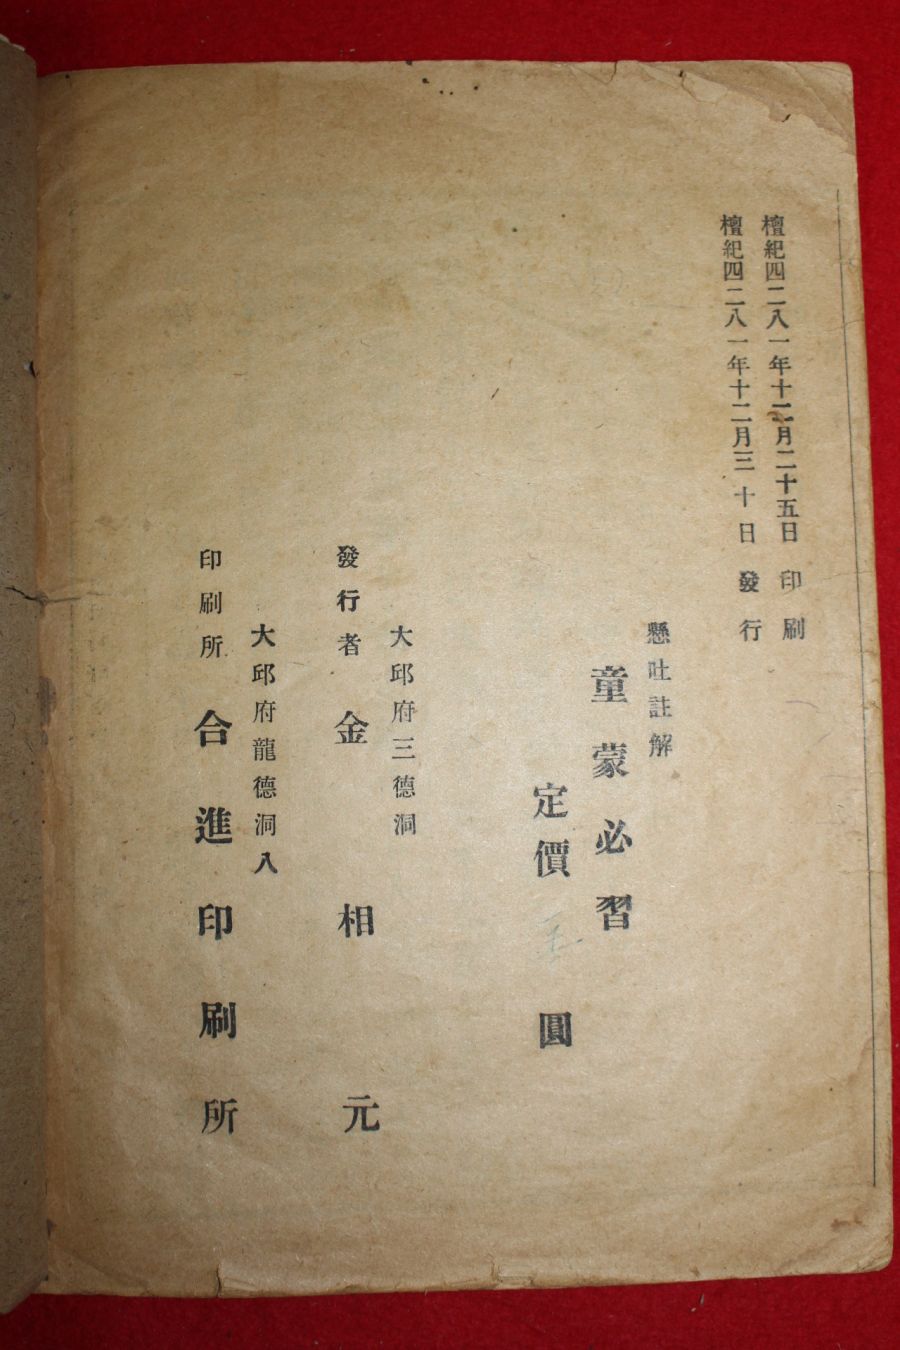 檀紀四二八一年十二月二十五日 印刷
檀紀四二八一年十二月三十日 發行
懸吐註解
童蒙必習
定價 圓
大邱府三德洞
發行者 金相元
大邱府龍德洞八
印刷所 合進印刷所